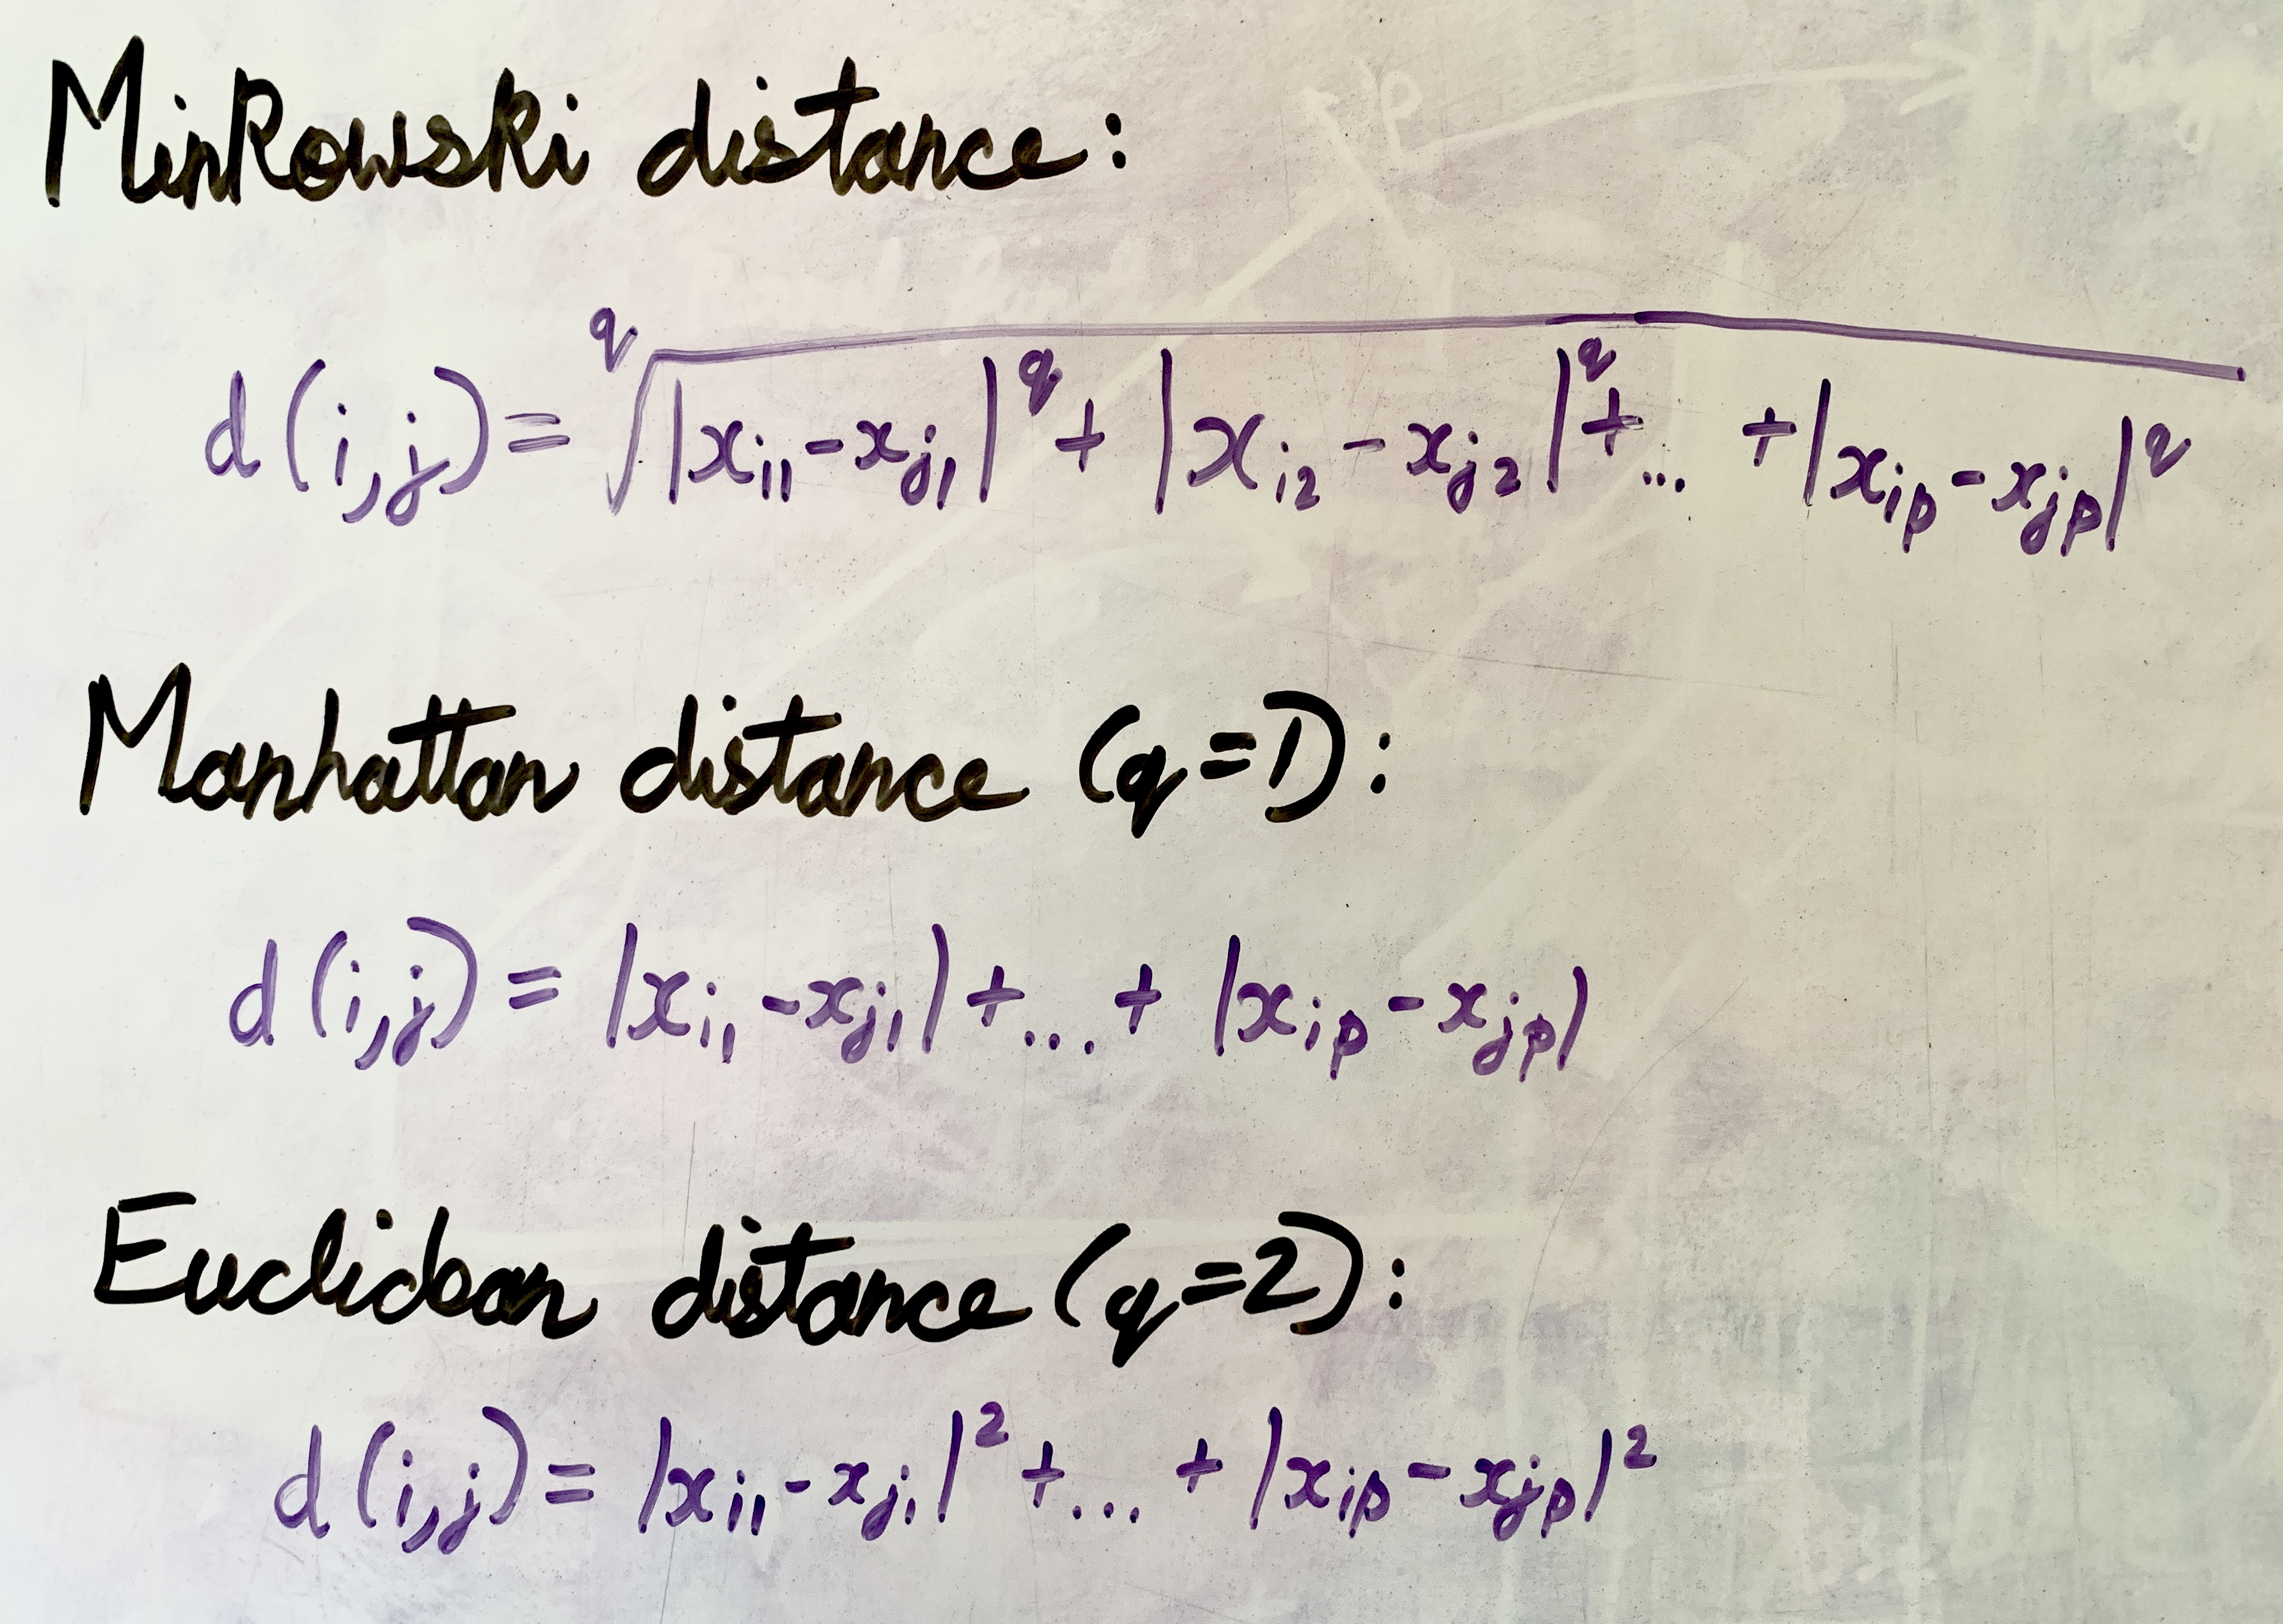 Minkowski distance:
d(i,j) = q√|xi1 - xj1|^q + |xi2 - xj2|^q + ... + |xip - xjp|^q
Manhattan distance (q=1):
d(i,j) = |xi1 - xj1| + ... + |xip - xjp|
Euclidean distance (q=2):
d(i,j) = |xi1 - xj1|^2 + ... + |xip - xjp|^2